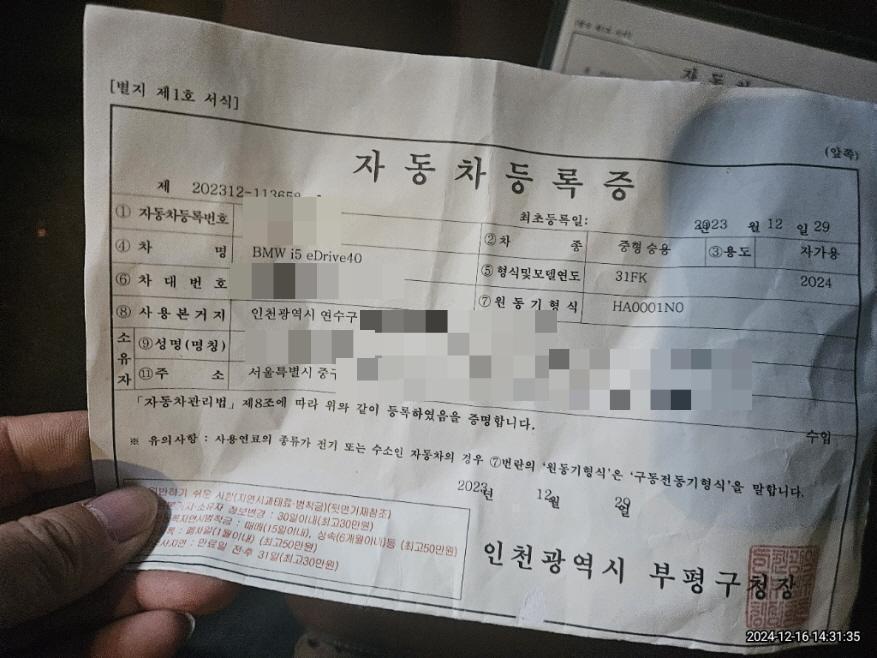 [별지 제1호 서식]
(앞쪽)
자동차등록증
제 202312-113658
최초등록일: 2023년 12월 29일
① 자동차등록번호
② 차 종 중형 승용 ③용도 자가용
④ 차 명 BMW i5 eDrive40
⑤ 형식및모델연도 31FK 2024
⑥ 차 대 번 호
⑦ 원 동 기 형 식 HA0001N0
⑧ 사 용 본 거 지 인천광역시 연수구
소유자
⑨ 성명(명칭)
⑪ 주 소 서울특별시 중구
「자동차관리법」 제8조에 따라 위와 같이 등록하였음을 증명합니다.
수입
※ 유의사항 : 사용연료의 종류가 전기 또는 수소인 자동차의 경우 ⑦번란의 '원동기형식'은 '구동전동기형식'을 말합니다.
2023년 12월 29일
하기 쉬운 사항(지연시과태료·범칙금)(뒷면기재참조)
소유자 정보변경 : 30일이내(최고30만원)
지연시범칙금 : 매매(15일이내), 상속(6개월이내)등 (최고50만원)
록 : 폐차일(1월이내) (최고50만원)
사지연 : 만료일 전후 31일(최고30만원)
인천광역시 부평구청장
2024-12-16 14:31:35